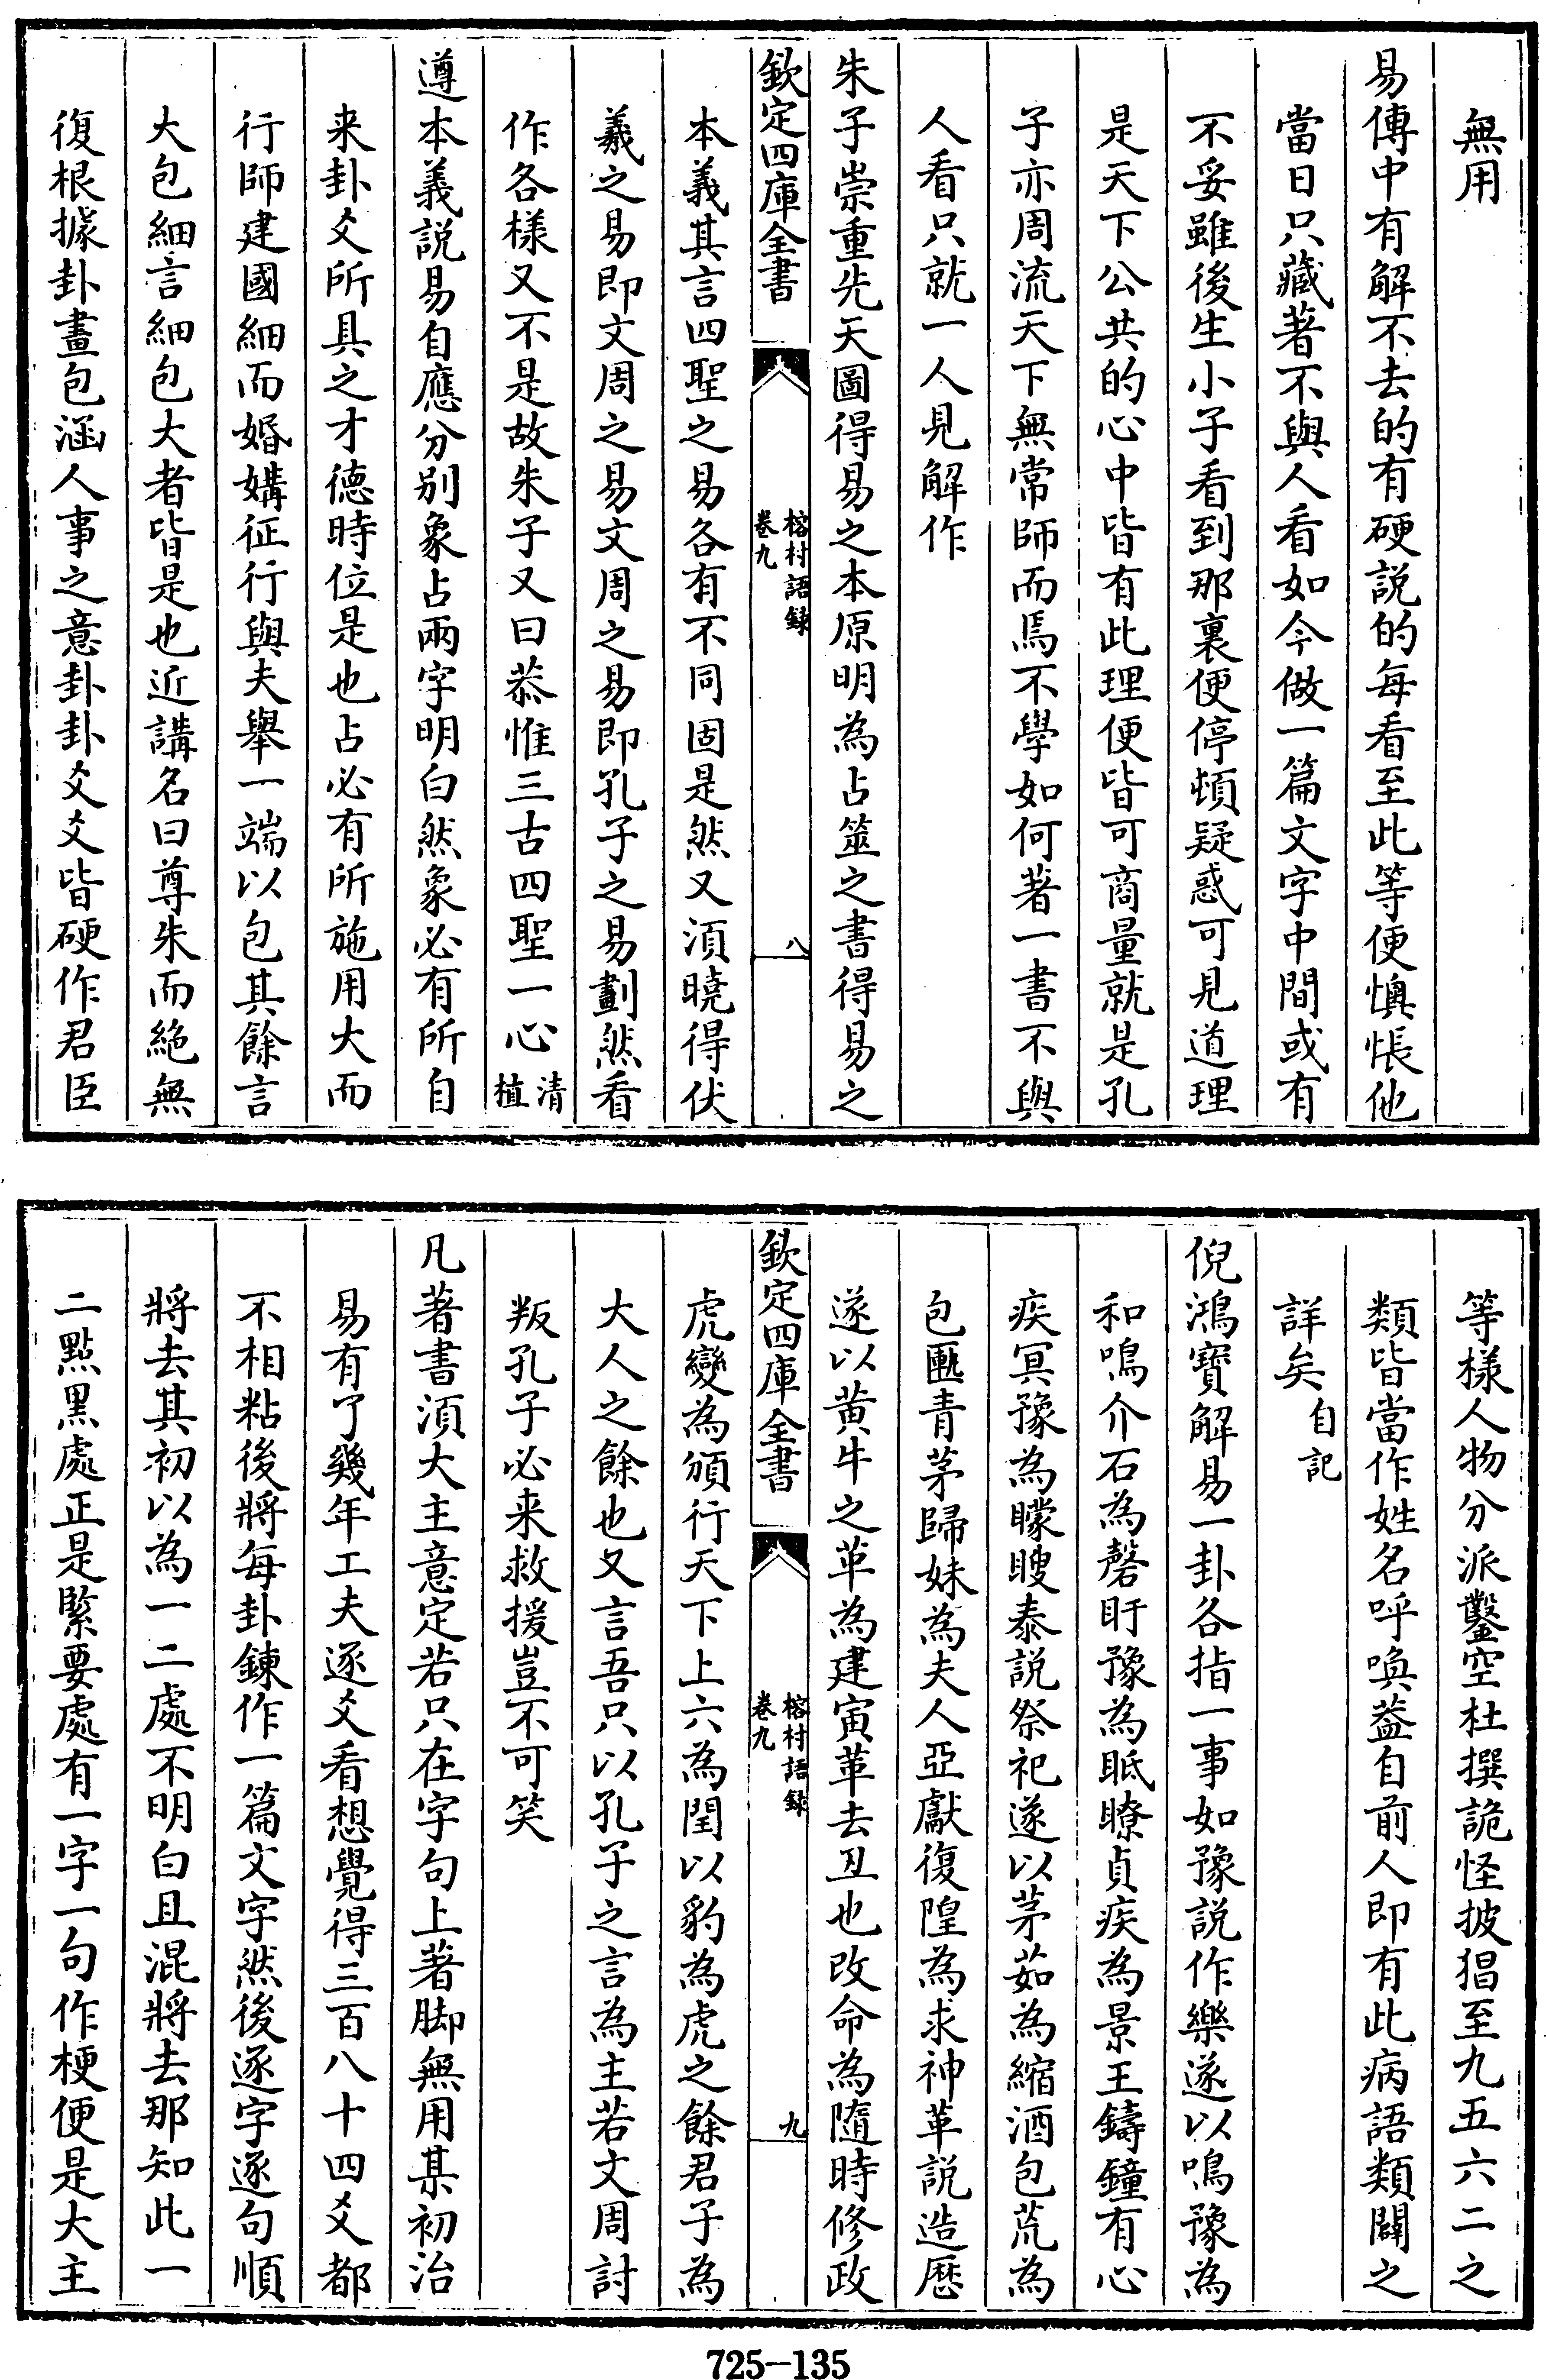 無用
易傳中有解不去的有硬說的每看至此等便懊悵他
當日只藏著不與人看如今做一篇文字中間或有
不妥雖後生小子看到那裏便停頓疑惑可見道理
是天下公共的心中皆有此理便皆可商量就是孔
子亦周流天下無常師而焉不學如何著一書不與
人看只就一人見解作
朱子崇重先天圖得易之本原明為占筮之書得易之
欽定四庫全書
榕村語録
卷九
八
本義其言四聖之易各有不同固是然又須曉得伏
羲之易即文周之易文周之易即孔子之易劃然看
作各樣又不是故朱子又曰恭惟三古四聖一心清植
遵本義說易自應分別象占兩字明白然象必有所自
来卦爻所具之才德時位是也占必有所施用大而
行師建國細而婚媾征行與夫舉一端以包其餘言
大包細言細包大者皆是也近講名曰尊朱而絶無
復根據卦畫包涵人事之意卦卦爻爻皆硬作君臣
等様人物分派鑿空杜撰詭怪披猖至九五六二之
類皆當作姓名呼喚葢自前人即有此病語類闢之
詳矣自記
倪鴻寶解易一卦各指一事如豫說作樂遂以鳴豫為
和鳴介石為磬盱豫為眡瞭貞疾為景王鑄鐘有心
疾冥豫為矇瞍泰說祭祀遂以茅茹為縮酒包荒為
包匭青茅歸妹為夫人亞獻復隍為求神革說造歴
遂以黄牛之革為建寅革去丑也改命為隨時修政
欽定四庫全書
榕村語録
卷九
九
虎變為頒行天下上六為閏以豹為虎之餘君子為
大人之餘也又言吾只以孔子之言為主若文周討
叛孔子必来救援豈不可笑
凡著書須大主意定若只在字句上著脚無用某初治
易有了幾年工夫逐爻看想覺得三百八十四爻都
不相粘後將每卦鍊作一篇文字然後逐字逐句順
將去其初以為一二處不明白且混將去那知此一
二點黑處正是緊要處有一字一句作梗便是大主
725-135